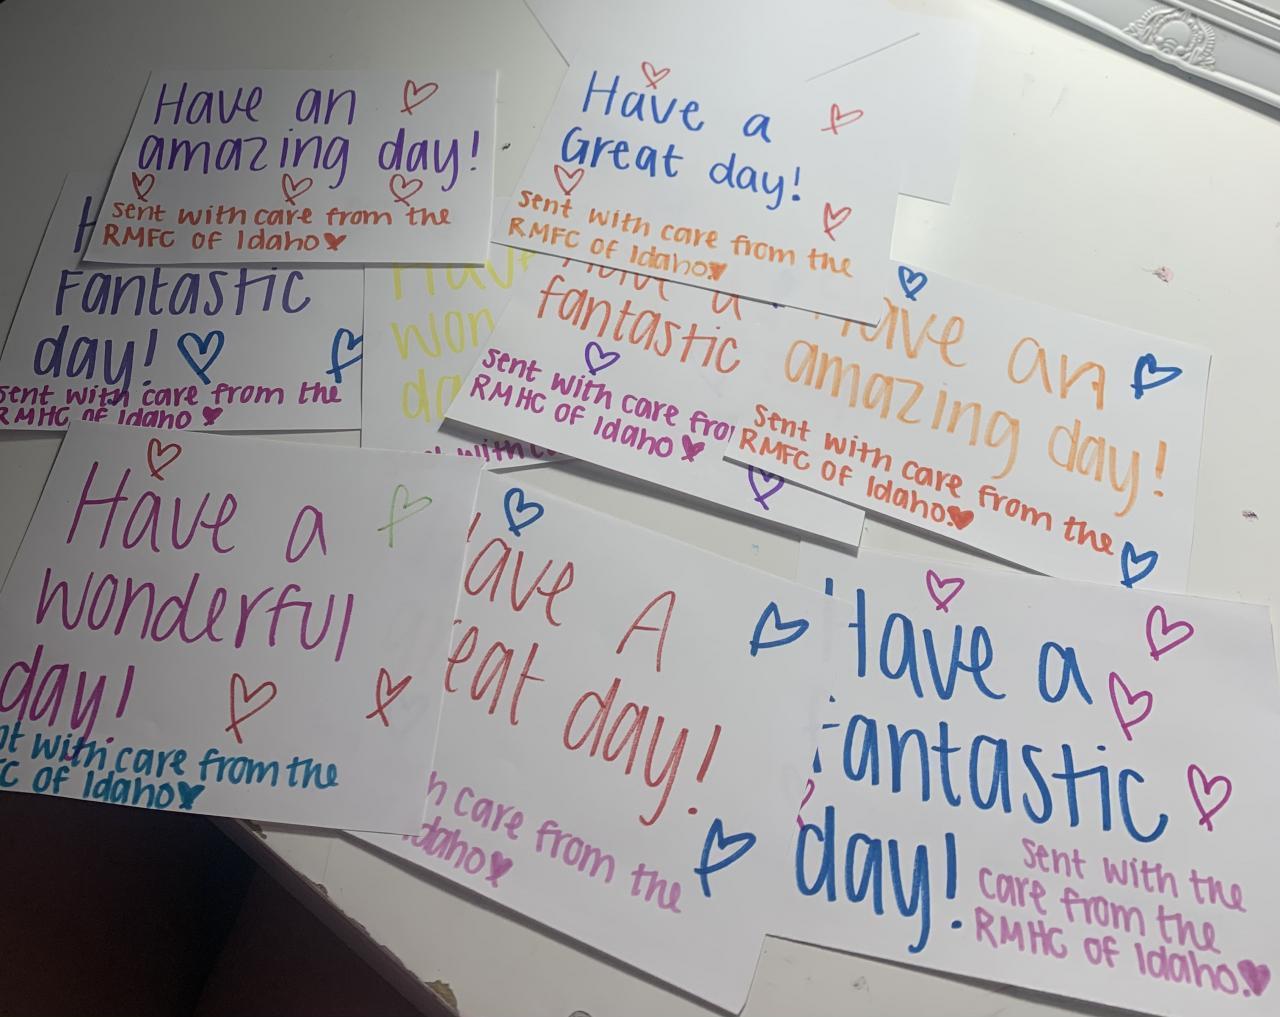 Have an
amazing day!
sent with care from the
RMFC of Idaho
Have a
Great day!
sent with care from the
RMFC of Idaho
Fantastic
day!
sent with care from the
RMHC of Idaho
Have
day
with
Have a
fantastic
sent with care
RMHC of Idaho
Have an
amazing day!
sent with care from the
RMFC of Idaho.
Have a
wonderful
day!
with care from the
of Idaho
Have A
day!
care from the
Idaho
Have a
Fantastic
day!
sent with the
care from the
RMHC of Idaho.